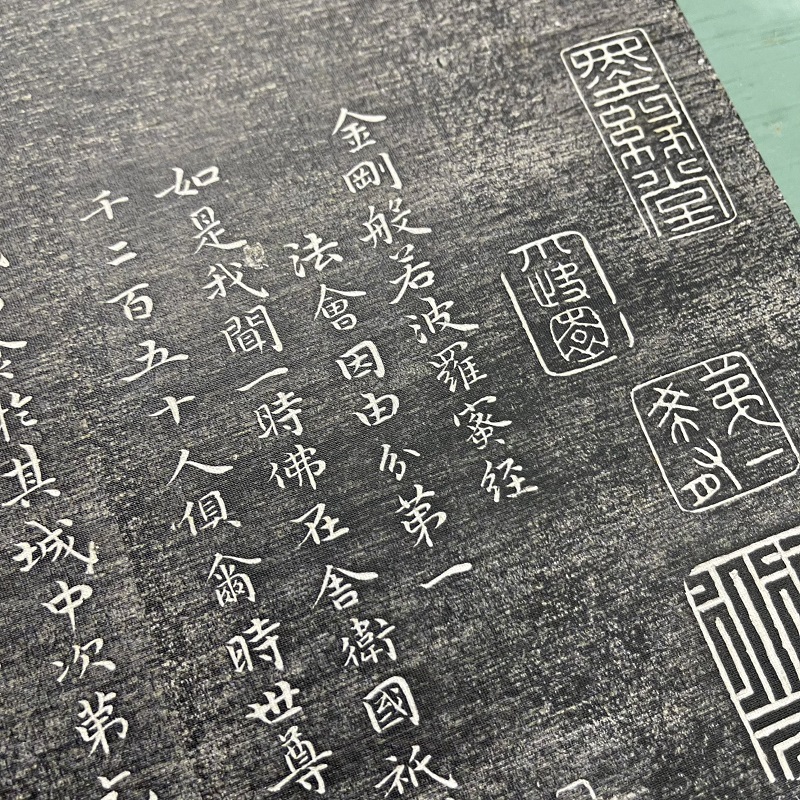 第一希有
金剛般若波羅蜜经
法會因由分第一
如是我聞一時佛在舍衛國祇
千二百五十人俱爾時世尊
於其城中次第